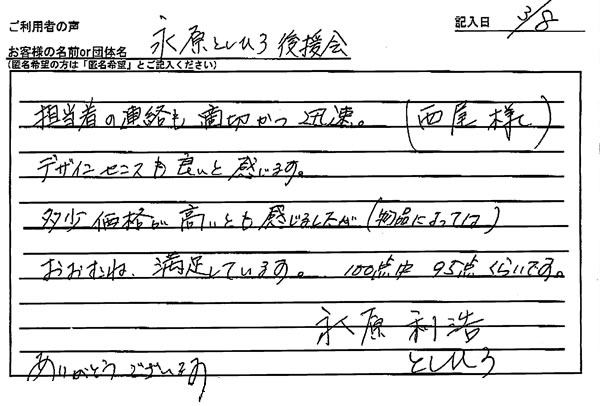 ご利用者の声
記入日 3/8
お客様の名前or団体名 永原としひろ後援会
(匿名希望の方は「匿名希望」とご記入ください)
担当者の連絡も適切かつ迅速。(西尾様)
デザインセンスも良いと感じます。
多少価格が高いとも感じましたが(物品によっては)
おおむね、満足しています。100点中95点くらいです。
永原利浩
としひろ
ありがとうございます